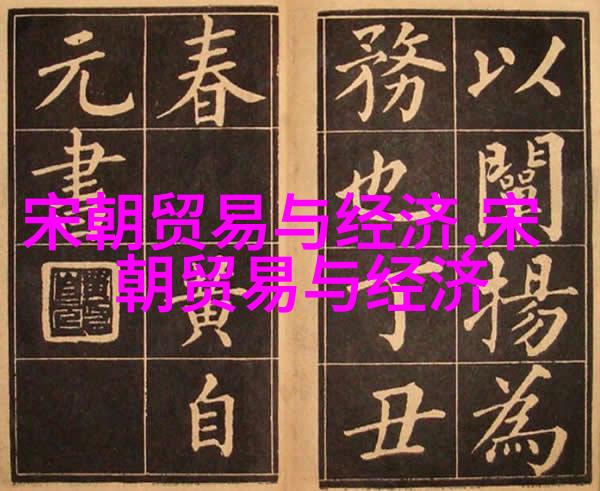 宋朝贸易与经济,宋
朝贸易与经济
以闡揚為
務也丁丑
春黃自
元書